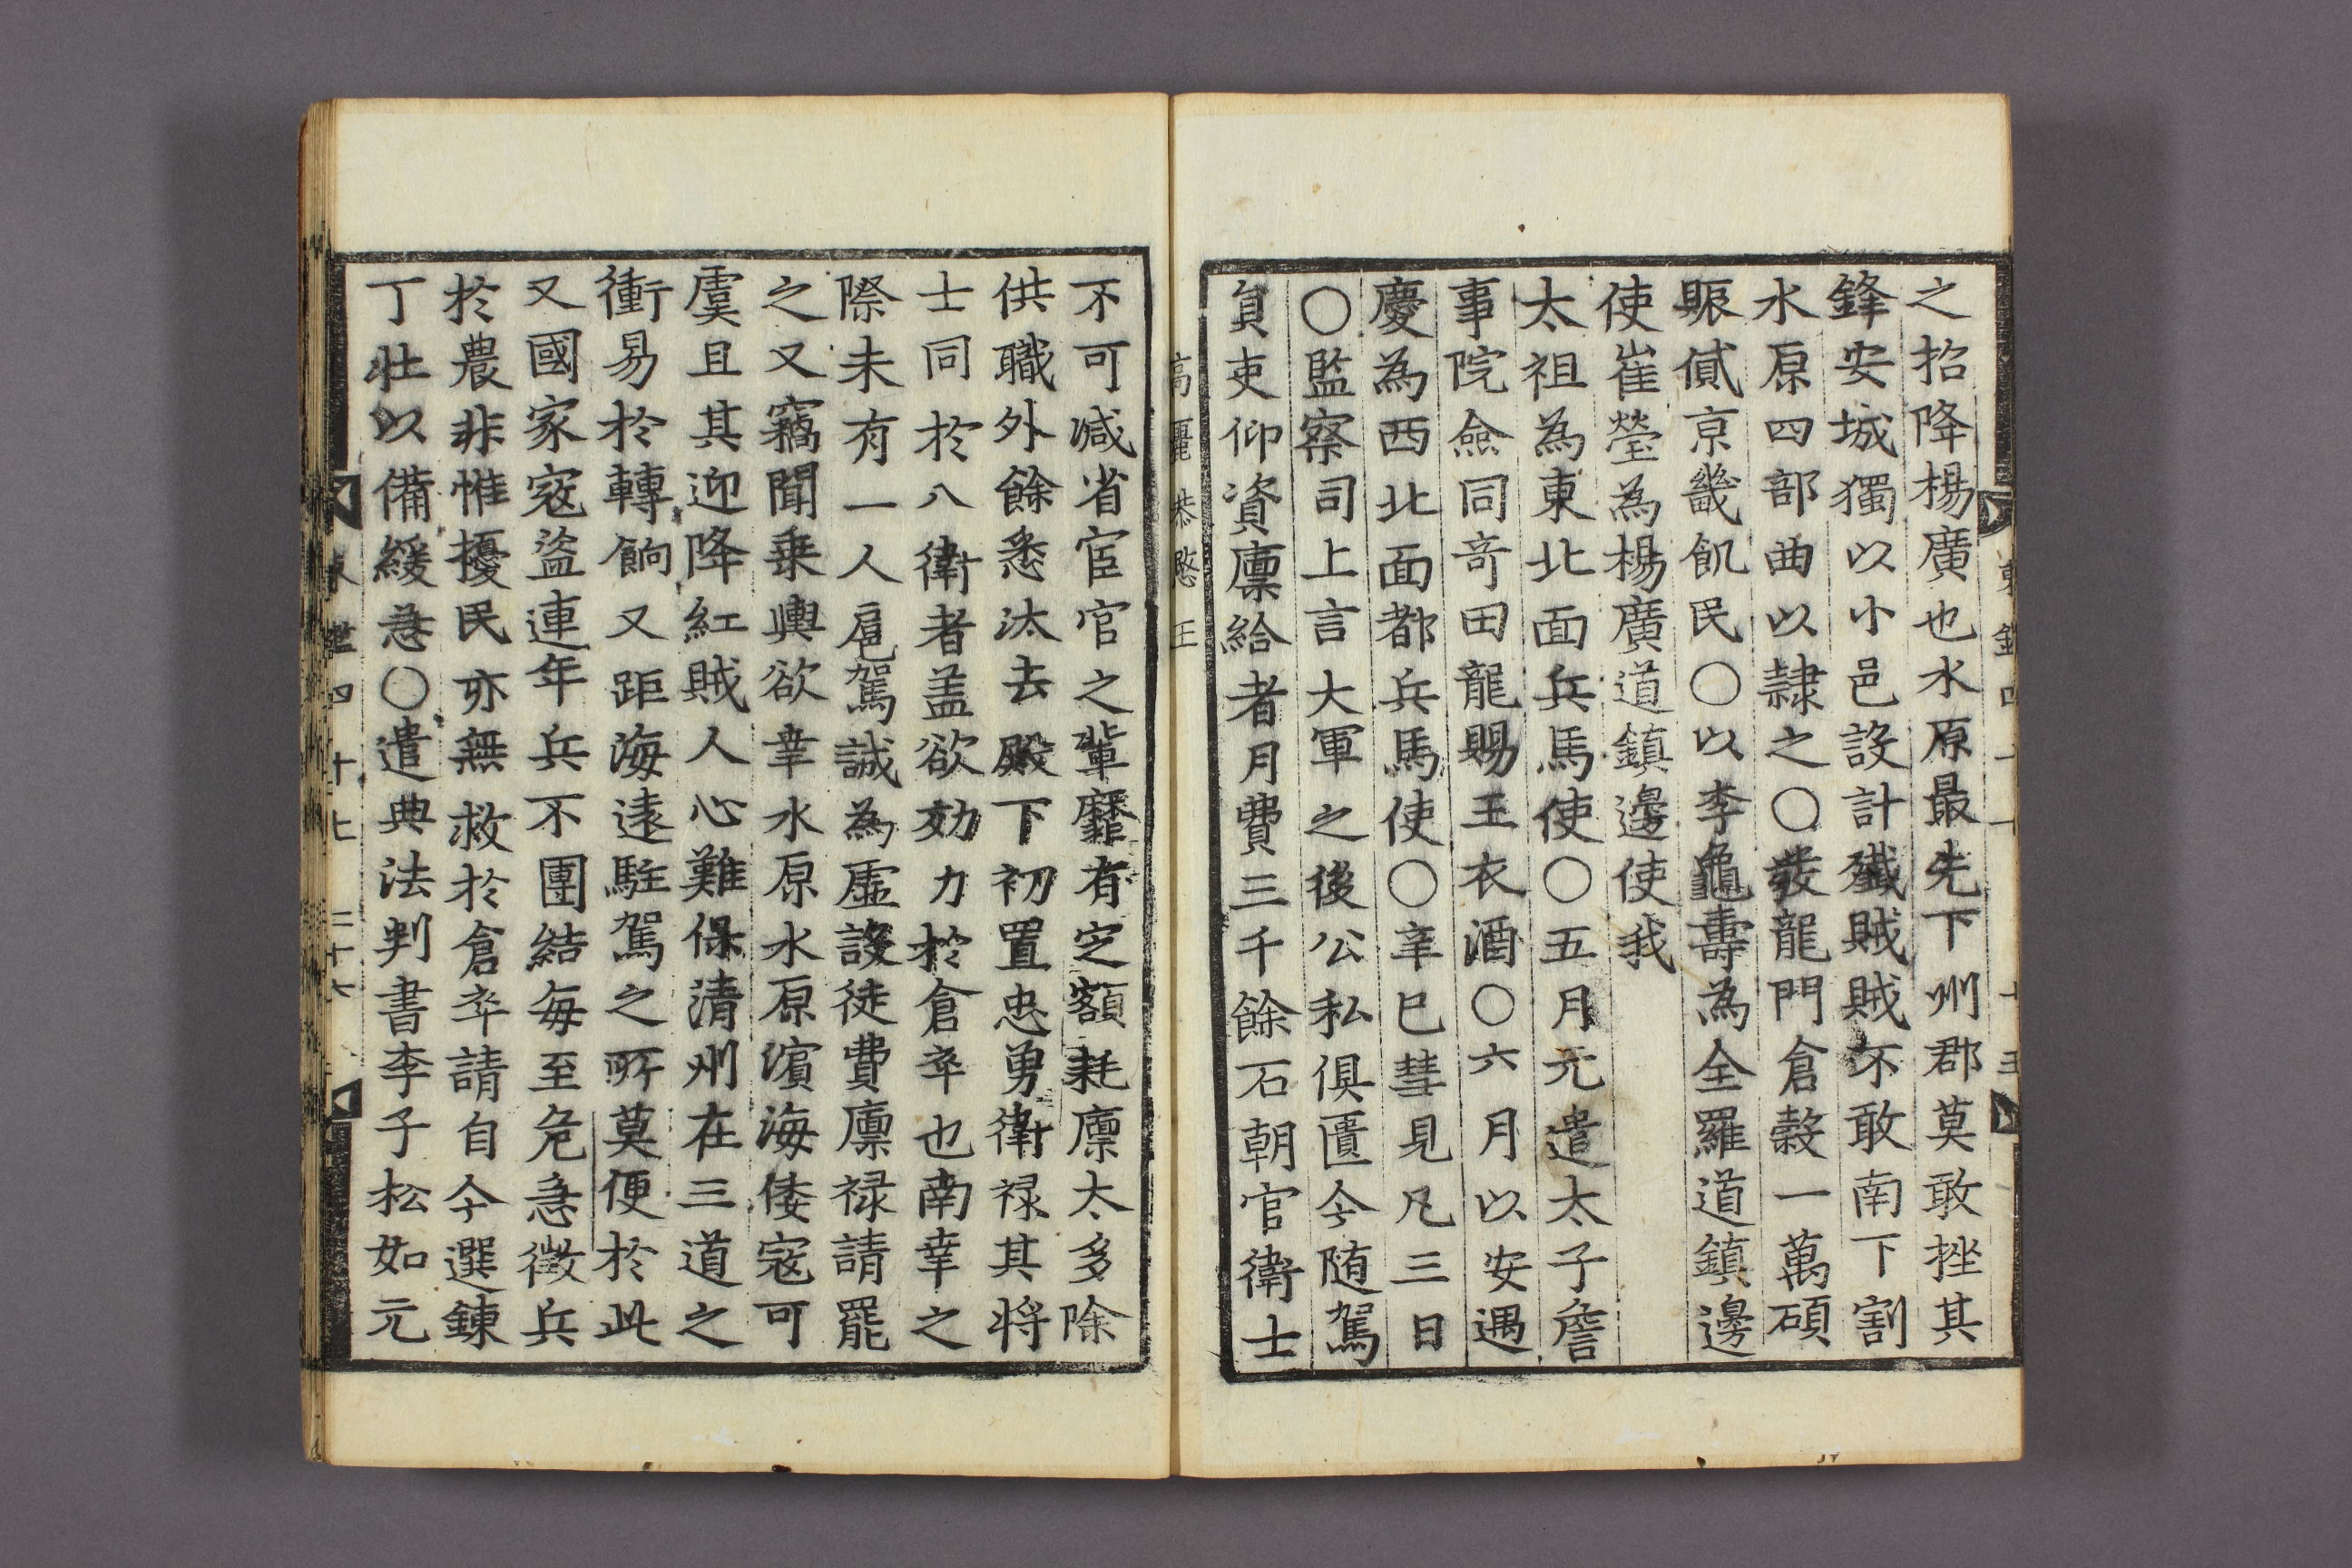 之招降楊廣也水原最先下州郡莫敢挫其
鋒安城獨以小邑設計殲賊賊不敢南下割
水原四部曲以隷之〇發龍門倉穀一萬碩
賑貸京畿飢民〇以李龜壽為全羅道鎮邊
使崔瑩為楊廣道鎮邊使我
太祖為東北面兵馬使〇五月元遣太子詹
事院僉同竒田龍賜王衣酒〇六月以安遇
慶為西北面都兵馬使〇辛巳彗見凡三日
〇監察司上言大軍之後公私俱匱今随駕
負吏仰資廪給者月費三千餘石朝官衛士
高麗恭愍王
不可減省宦官之輩靡有定額耗廪太多除
供職外餘悉汰去殿下初置忠勇衛禄其将
士同於八衛者盖欲効力於倉卒也南幸之
際未有一人扈駕誠為虛設徒費廪禄請罷
之又竊聞乗輿欲幸水原水原濵海倭寇可
虞且其迎降紅賊人心難保清州在三道之
衝易於轉餉又距海遠駐駕之所莫便於此
又國家寇盗連年兵不團結每至危急徵兵
於農非惟擾民亦無救於倉卒請自今選鍊
丁壯以備緩急〇遣典法判書李子松如元